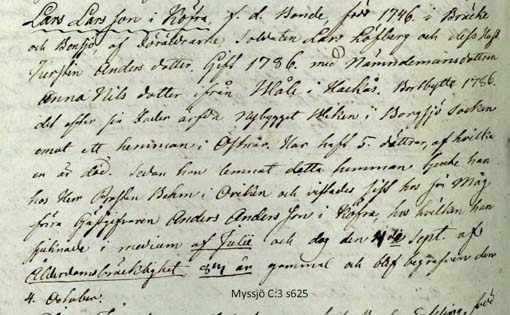 Lars Larsson i Höfra, f. d. Bonde, föd 1746. i Bräcke
och Bensjö af Föräldrarne Soldaten Lars Löfberg och dess Hust.
Kerstin Anders dotter. Gift 1786. med Nämndemansdottren
Anna Nils dotter ifrån Måle i Hackås. Bortbytte 1786.
det efter sin Fader ärfda Nybygget Wiken i Borgsjö Socken
emot ett hemman i Ofne. Har haft 5. döttrar, af hvilka
en är död. Sedan han lemnat detta hemman, tjente han
hos Herr Prosten Behm i Oviken och vistades sist hos sin Måg
förra Gästgifvaren Anders Andersson i Höfra, hos hvilken han
sjuknade i medium af Julii och dog den Sept. af
Ålderdomsbräcklighet, 84 år gammal och blef begrafven den
4. October.
Myssjö C:3 s625